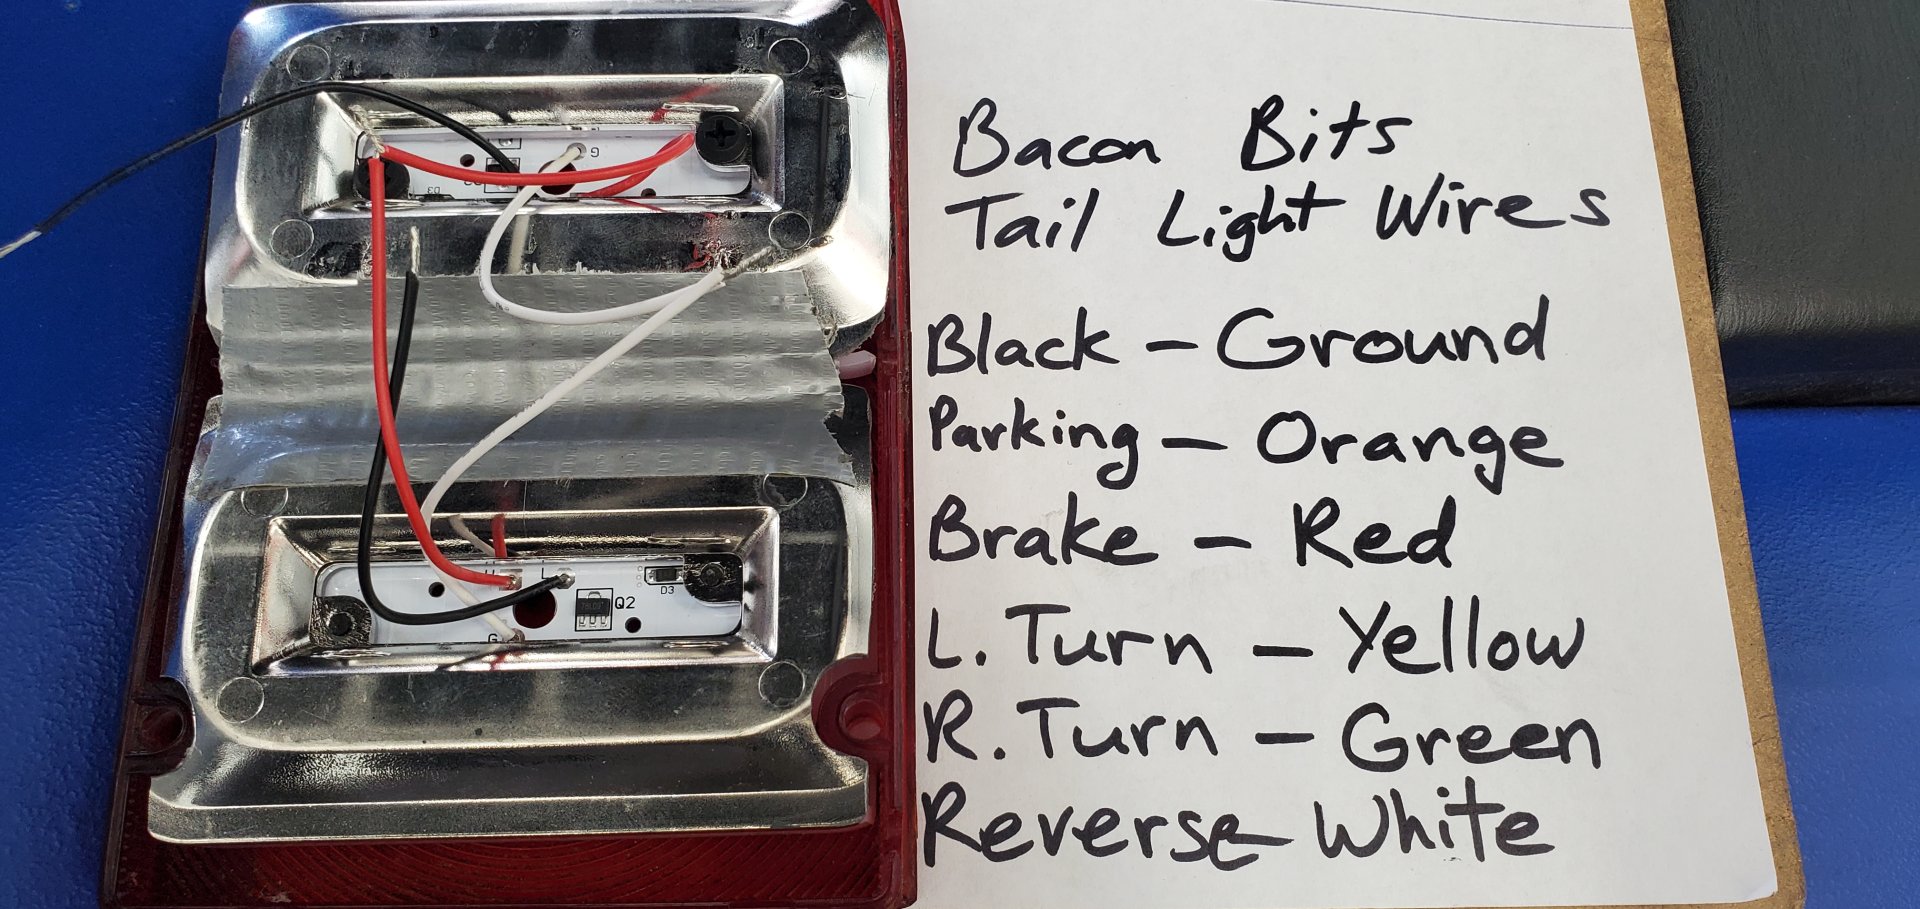 Bacon Bits
Tail Light Wires
Black - Ground
Parking - Orange
Brake - Red
L. Turn - Yellow
R. Turn - Green
Reverse - White
G
D3
L
D3
Q2
G